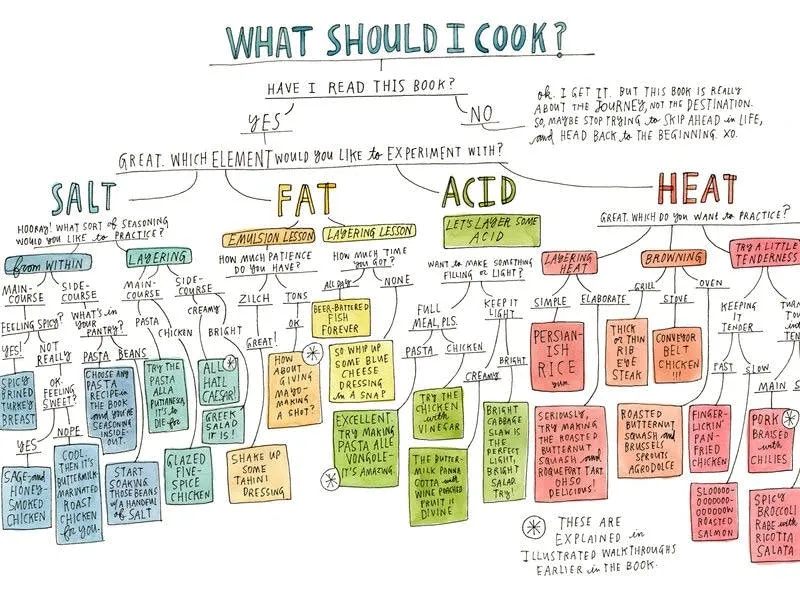 WHAT SHOULD I COOK?
HAVE I READ THIS BOOK?
YES
NO
ok. I GET IT. BUT THIS BOOK IS REALLY
ABOUT THE JOURNEY, NOT THE DESTINATION.
SO, MAYBE STOP TRYING to SKIP AHEAD in LIFE,
and HEAD BACK to THE BEGINNING. XO.
GREAT. WHICH ELEMENT WOULD YOU LIKE to EXPERIMENT WITH?
SALT
HOORAY! WHAT SORT of SEASONING
WOULD YOU LIKE to PRACTICE?
from WITHIN
MAIN-
COURSE
FEELING SPICY?
YES!
SPICY
BRINED
TURKEY
BREAST
NOT
REALLY
OK.
FEELING
SWEET?
YES
SAGE-and
HONEY-
SMOKED
CHICKEN
NOPE
COOL
THEN IT'S
BUTTERMILK
MARINATED
ROAST
CHICKEN
for YOU.
SIDE-
COURSE
WHAT'S in
YOUR
PANTRY?
PASTA
CHOOSE ANY
PASTA
RECIPE in
THE BOOK
and YOU'RE
SEASONING
INSIDE-
OUT.
BEANS
START
SOAKING
THOSE BEANS
w/ A HANDFUL
of SALT
LAYERING
MAIN-
COURSE
PASTA
TRY THE
PASTA
ALLA
PUTTANESCA,
IT'S to
DIE for
CHICKEN
GLAZED
FIVE-
SPICE
CHICKEN
SIDE-
COURSE
CREAMY
ALL
HAIL
CAESAR!
BRIGHT
GREEK
SALAD
IT IS!
FAT
EMULSION LESSON
HOW MUCH PATIENCE
DO YOU HAVE?
ZILCH
GREAT!
SHAKE UP
SOME
TAHINI
DRESSING
TONS
OK
HOW
ABOUT
GIVING
MAYO-
MAKING
A SHOT?
LAYERING LESSON
HOW MUCH TIME
YOU GOT?
ALL DAY
BEER-BATTERED
FISH
FOREVER
NONE
SO WHIP UP
SOME BLUE
CHEESE
DRESSING
in A SNAP
ACID
LET'S LAYER SOME
ACID
WANT to MAKE SOMETHING
FILLING OR LIGHT?
FULL
MEAL, PLS.
PASTA
EXCELLENT.
TRY MAKING
PASTA ALLE
VONGOLE-
IT'S AMAZING.
CHICKEN
TRY THE
CHICKEN
with
VINEGAR
KEEP IT
LIGHT
CREAMY
THE BUTTER-
MILK PANNA
COTTA with
WINE POACHED
FRUIT IS
DIVINE
BRIGHT
BRIGHT
CABBAGE
SLAW IS
THE
PERFECT
LIGHT,
BRIGHT
SALAD.
TRY!
HEAT
GREAT. WHICH DO YOU WANT to PRACTICE?
LAYERING
HEAT
SIMPLE
PERSIAN-
ISH
RICE
yum.
ELABORATE
SERIOUSLY,
TRY MAKING
THE ROASTED
BUTTERNUT
SQUASH and
ROQUEFORT TART
OH SO
DELICIOUS!
BROWNING
GRILL
THICK
or THIN
RIB
EYE
STEAK
STOVE
ROASTED
BUTTERNUT
SQUASH and
BRUSSELS
SPROUTS
AGRODOLCE
OVEN
CONVEYOR
BELT
CHICKEN
!!!
TRY A LITTLE
TENDERNESS
KEEPING
IT
TENDER
FAST
FINGER-
LICKIN'
PAN-
FRIED
CHICKEN
SLOW
SLOOOOO-
OOOOOOO-
OOOOOOOW
ROASTED
SALMON
MAIN
PORK
BRAISED
with
CHILIES
SPICY
BROCCOLI
RABE with
RICOTTA
SALATA
THESE ARE
EXPLAINED in
ILLUSTRATED WALKTHROUGHS
EARLIER in THE BOOK.